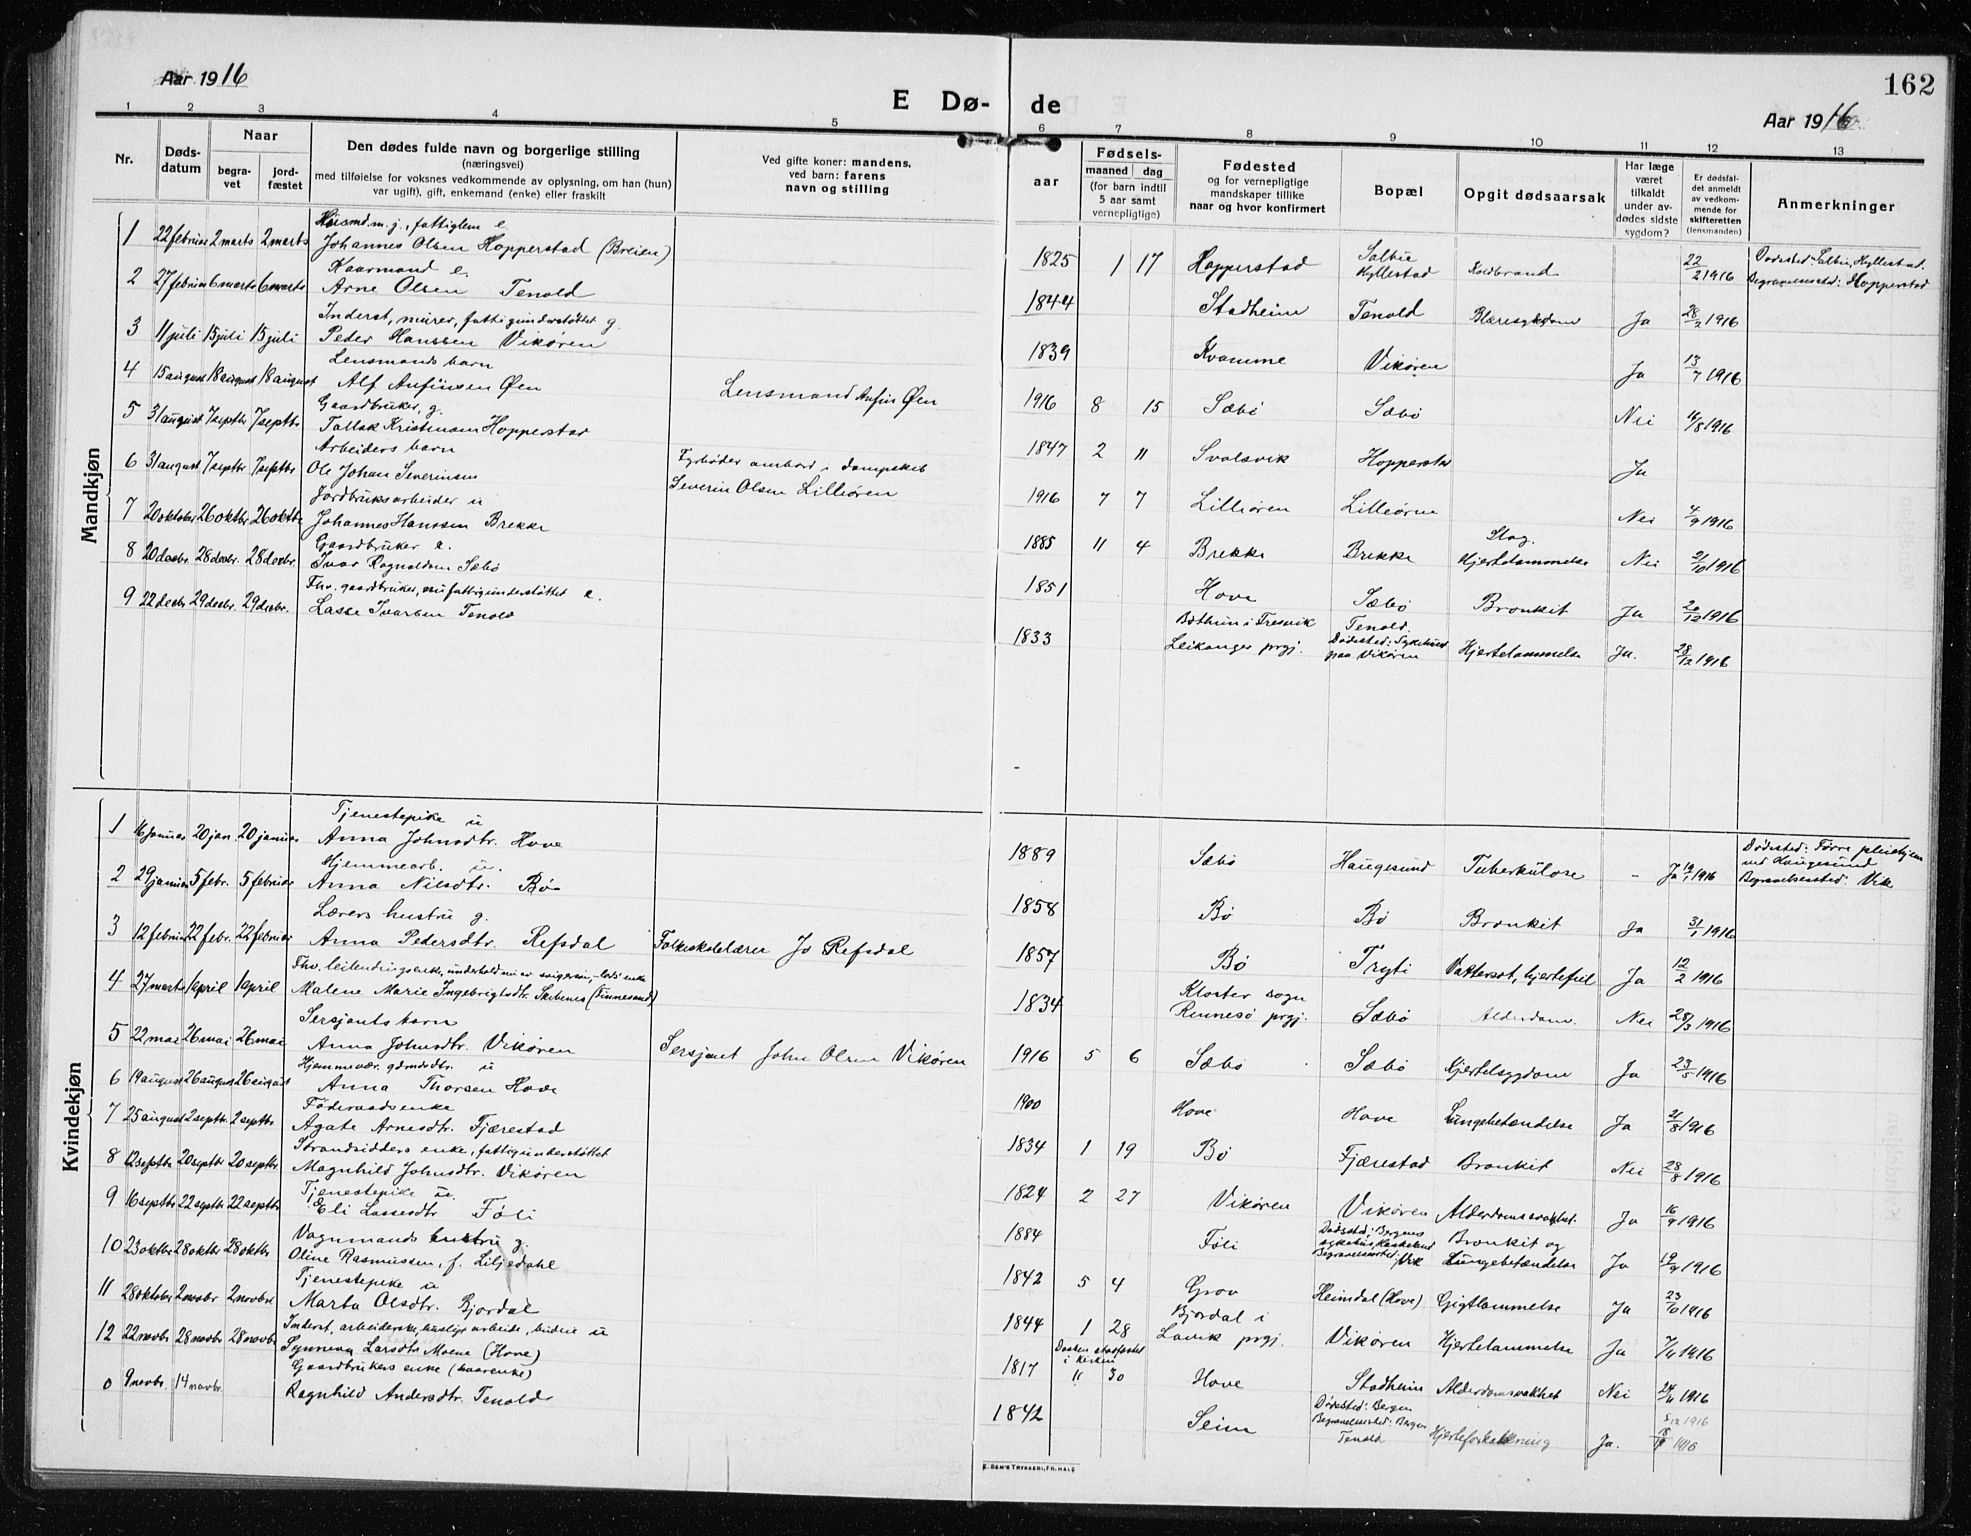 Aar 1916
E Dø-
de
Aar 1916
162
1 2 3 4 5 6 7 8 9 10 11 12 13
Nr.
Døds-datum
Naar
begra-vet
jord-fæstet
Den dødes fulde navn og borgerlige stilling
(næringsvei)
med tilføielse for voksnes vedkommende av oplysning, om han (hun)
var ugift), gift, enkemand (enke) eller fraskilt
Ved gifte koner: mandens,
ved barn: farens
navn og stilling
Fødsels-
aar
maaned dag
(for barn indtil
5 aar samt
vernepligtige)
Fødested
og for vernepligtige
mandskaper tillike
naar og hvor konfirmert
Bopæl
Opgit dødsaarsak
Har læge
været
tilkaldt
under av-
dødes sidste
sygdom?
Er dødsfal-
det anmeldt
av vedkom-
mende for
skifteretten
(lensmanden)
Anmerkninger
Mandkjøn
Husmd.m.j., fattiglem e.
1 22 februar 2 marts 2 marts Johannes Olsen Hopperstad (Breien) 1825 1 17 Hopperstad Salbu Hyllestad Koldbrand 22/2 1916 Dødssted: Salbu, Hyllestad. Begravelsessted: Hopperstad
Kaarmand e.
2 27 februar 6 marts 6 marts Arne Olsen Tenold 1844 Stadheim Tenold Blæresykdom Ja 28/2 1916
Inderst, murer, fattigunderstøttet g.
3 11 juli 15 juli 15 juli Peder Hanssen Vikøren 1839 Kvamme Vikøren Ja 13/7 1916
Lensmands barn
4 15 august 18 august 18 august Alf Anfinsen Øen Lensmand Anfin Øen 1916 8 15 Sæbø Sæbø Nei 16/8 1916
Gaardbruker, g.
5 31 august 7 septbr 7 septbr Tollak Kristensen Hopperstad 1847 2 11 Svolsvik Hopperstad Ja
Arbeiders barn
6 31 august 7 septbr. 7 septbr. Ole Johan Severinsen Fyrbøder ombord i dampskib Severin Olsen Lilleøren 1916 7 7 Lilleøren Lilleøren Nei 4/9 1916
Jordbruksarbeider u
7 20 oktober 26 oktbr 26 oktbr Johannes Hanssen Brekke 1885 11 4 Brekke Brekke Slag. Hjertelammelse Nei 21/10 1916
Gaardbruker e.
8 20 decbr. 28 decbr. 28 decbr. Ivar Ragnaldsen Sæbø 1851 Hove Sæbø Bronkit Ja 20/12 1916
Fhv. gaardbruker, nu fattigunderstøttet e.
9 22 decbr 29 decbr. 29 decbr. Lasse Ivarsen Tenold 1833 Bøthun i Fresvik Leikanger prgj. Tenold. Dødssted: Sykehuset paa Vikøren Hjertelammelse Ja. 28/12 1916
Kvindekjøn
Tjenestepike u
1 16 januar 20 jan. 20 januar Anna Johnsdtr. Hove 1889 Sæbø Haugesund Tuberkulose - Ja 19/1 1916 Dødssted: Førre pleiehjem ved Haugesund Begravelsessted: Vik
Hjemmearb. u.
2 29 januar 5 febr. 5 februar Anna Nilsdtr. Bø 1858 Bø Bø Bronkit Ja 31/1 1916
Lærers hustru g.
3 12 februar 22 febr. 22 februar Anna Pedersdtr. Refsdal Folkeskolelærer Jo Refsdal 1857 Bø Tryti Vattersot, hjertefeil Ja 12/2 1916
Fhv. leilendingsenke, underhold nu av svigersøn, - lods enke
4 27 marts 1 april 1 april Malene Marie Ingebrigtsdtr. Skibenes (Finnesand) 1834 Kloster sogn Rennesø prgj. Sæbø Alderdom. Nei 28/3 1916
Sersjants barn
5 22 mai 26 mai 26 mai Anna Johnsdtr. Vikøren Sersjant John Olsen Vikøren 1916 5 6 Sæbø Sæbø Hjertesygdom Ja 23/5 1916
Hjemmevær. gdmdsdtr. u
6 19 august 26 august 26 august Anna Thorsen Hove 1900 Hove Hove Lungebetændelse Ja 21/8 1916
Føderaadsenke
7 25 august 2 septbr. 2 septbr. Agate Arnesdtr. Fjærestad 1834 1 19 Bø Fjærestad Bronkit Nei 28/8 1916
Strandsidders enke, fattigunderstøttet
8 12 septbr 20 septbr 20 septbr. Magnhild Johnsdtr. Vikøren 1824 2 27 Vikøren Vikøren Alderdomssvakhet. Ja 16/9 1916
Tjenestepike u.
9 16 septbr 22 septbr 22 septbr Eli Lassesdtr Føli 1884 Føli Dødssted: Bergens sykehus, Haukeland Begravelsessted: Vik Bronkit og Lungebetændelse Ja 19/9 1916
Vognmands hustru g.
10 23 oktbr 28 oktbr 28 oktbr. Oline Rasmussen, f. Liljedahl 1842 5 4 Grov Heimdal (Hove) Gigtlammelse Ja 23/10 1916
Tjenestepike u
11 28 oktober 2 novbr 2 novbr. Marta Olsdtr. Bjordal 1844 1 28 Bjordal i Lavik prgj. Vikøren Hjertelammelse Ja 7/11 1916
Inderst, arbeiderske, huslige arbeide, budeie u
12 22 novbr 28 novbr 28 novbr. Synneva Larsdtr Moene (Hove) Daaben stadfæstet i kirken 1817 " 30 Hove Stadheim Alderdomssvakhet Nei 24/11 1916
Gaardbrukers enke (kaarenke)
0 9 novbr. 14 novbr. Ragnhild Andersdtr. Tenold 1842 Seim Dødssted: Bergen Begravelsessted: Bergen Tenold Hjerteforkalkning Ja. 5/12 1916
E. SEM'S TRYKKERI, FR.HALD